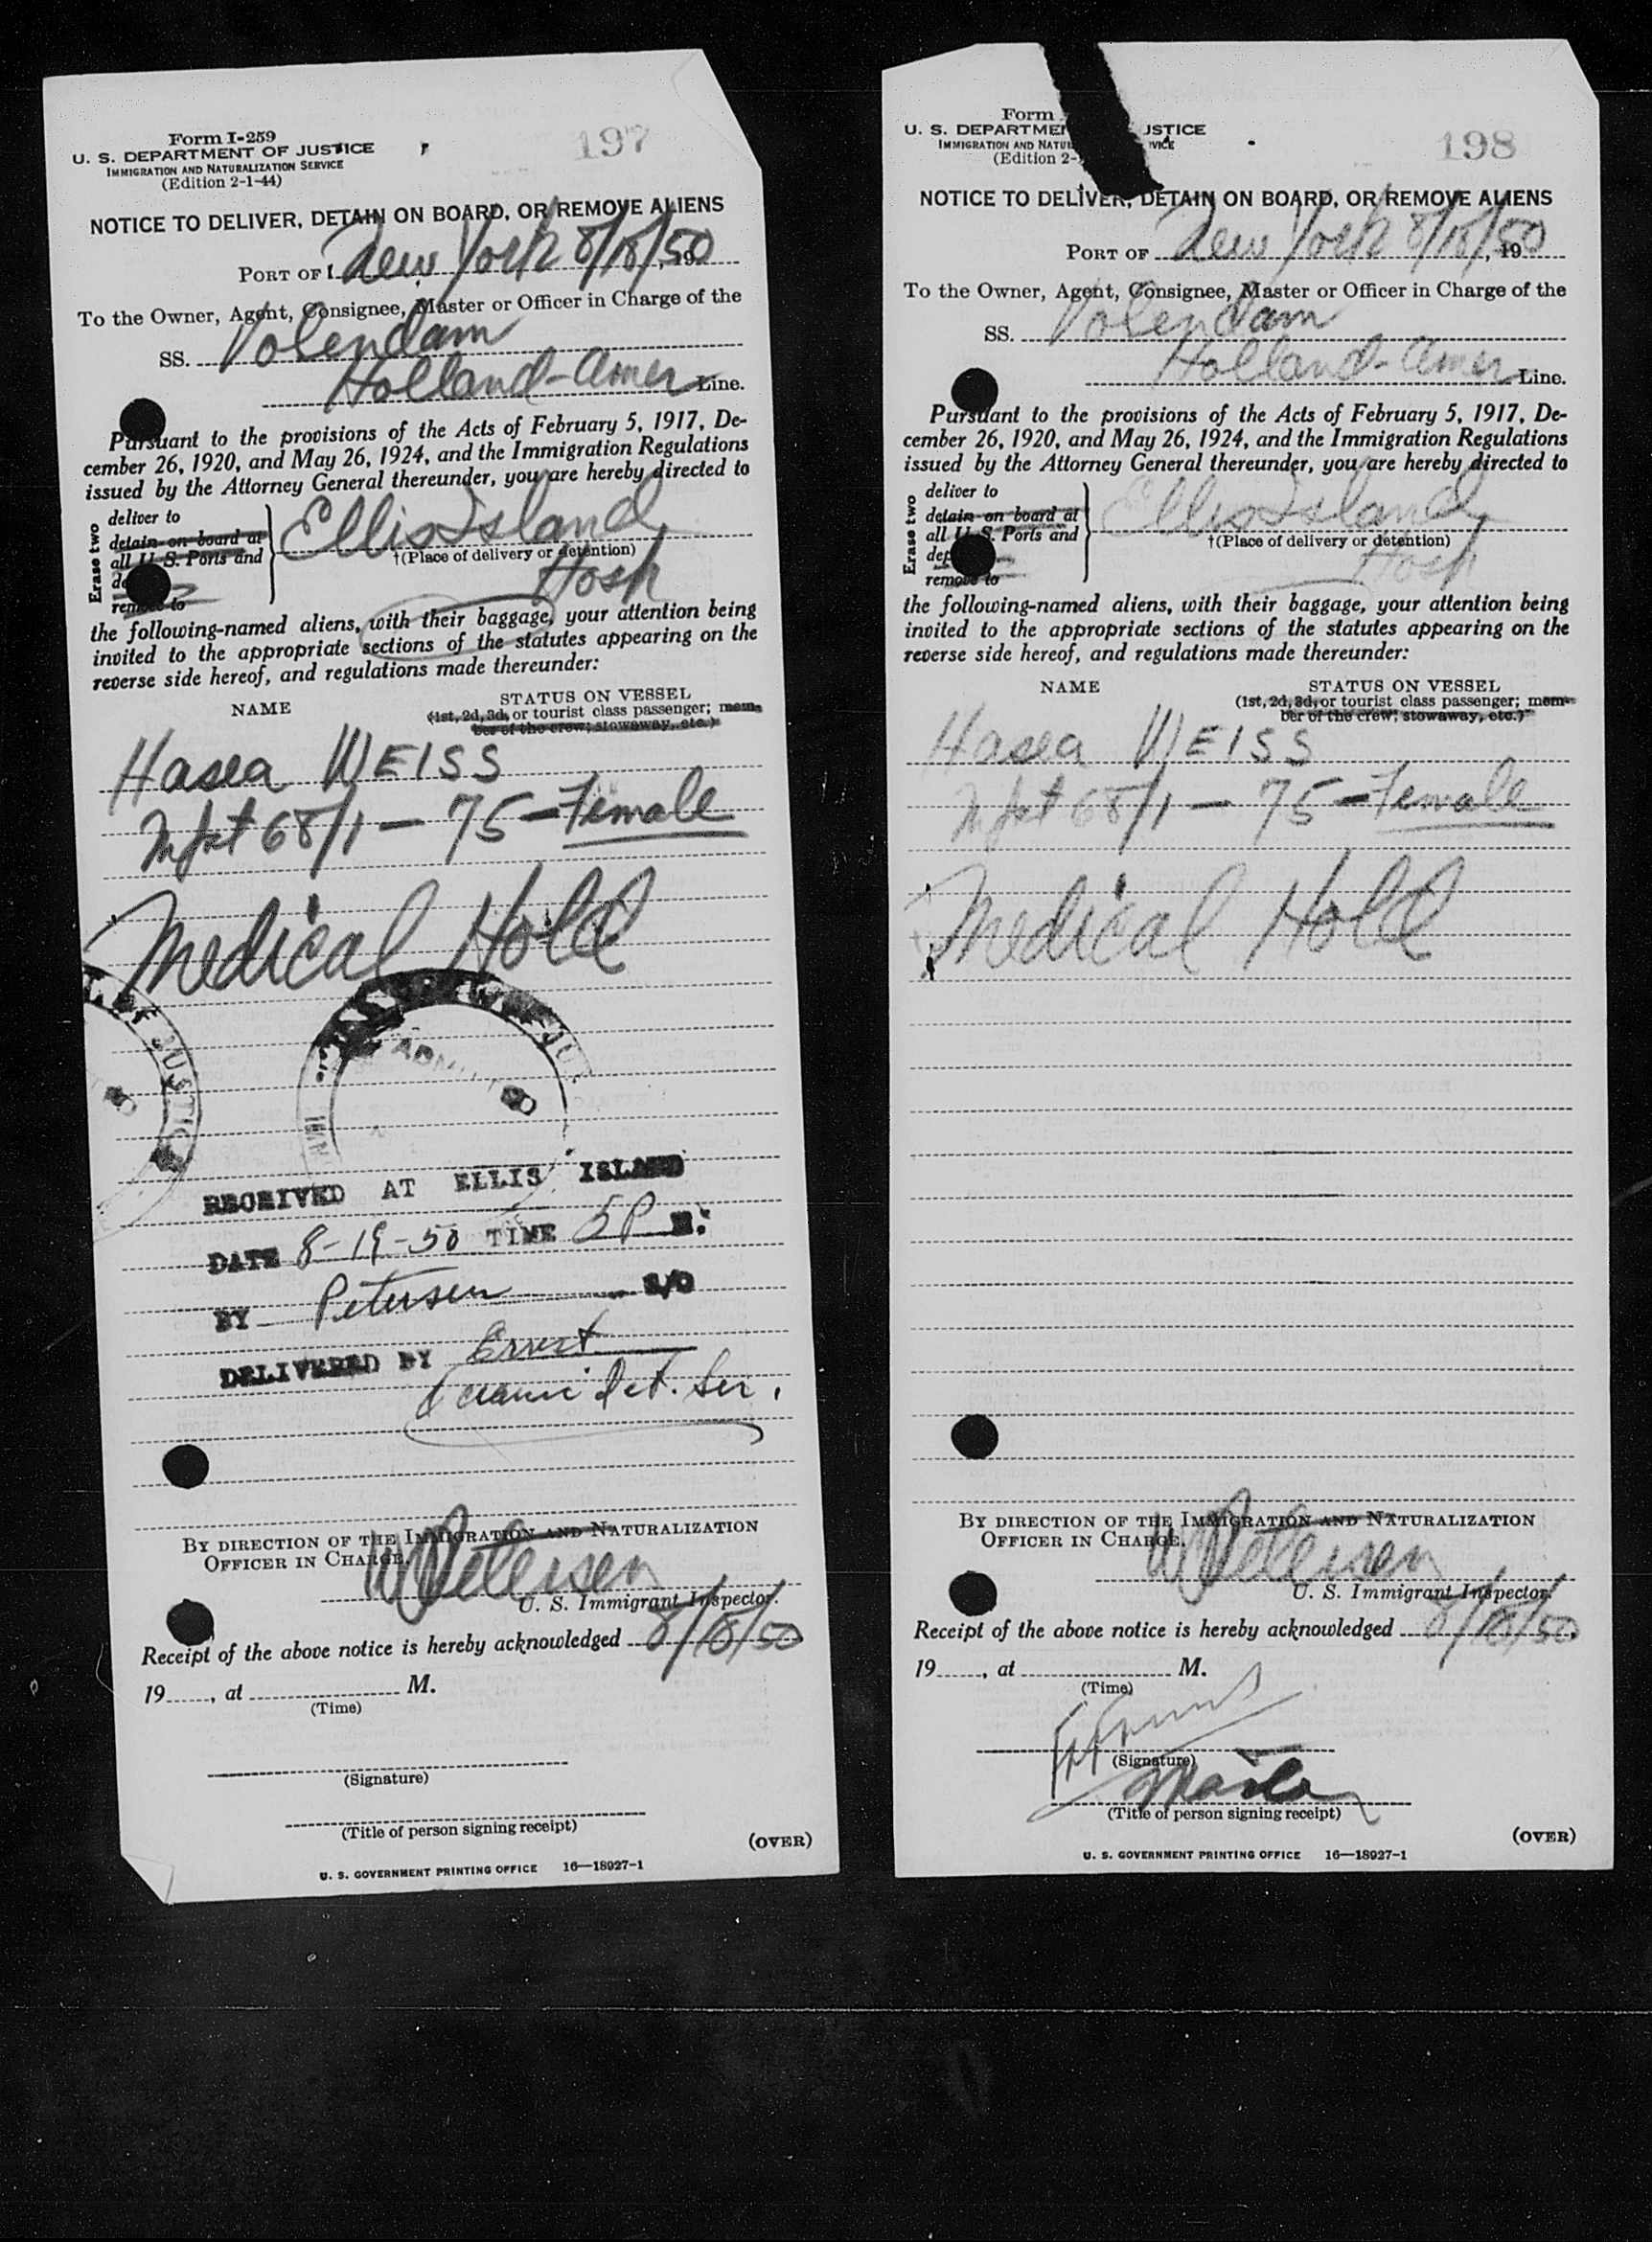 Form I-259
U. S. DEPARTMENT OF JUSTICE
IMMIGRATION AND NATURALIZATION SERVICE
(Edition 2-1-44)
197
NOTICE TO DELIVER, DETAIN ON BOARD, OR REMOVE ALIENS
PORT OF New York 8/18/50, 19
To the Owner, Agent, Consignee, Master or Officer in Charge of the
SS. Volendam
Holland-Amer Line.
Pursuant to the provisions of the Acts of February 5, 1917, De-
cember 26, 1920, and May 26, 1924, and the Immigration Regulations
issued by the Attorney General thereunder, you are hereby directed to
Erase two
deliver to
detain on board at
all U. S. Ports and
remove to
Ellis Island
†(Place of delivery or detention)
Hosp
the following-named aliens, with their baggage, your attention being
invited to the appropriate sections of the statutes appearing on the
reverse side hereof, and regulations made thereunder:
NAME
STATUS ON VESSEL
(1st, 2d, 3d, or tourist class passenger; mem-
ber of the crew; stowaway, etc.)
Hasea WEISS
Mfst 68/1 — 75 — Female
Medical Hold
OF JUSTIC
ADMITTED
RECEIVED AT ELLIS ISLAND
DATE 8-19-50 TIME 5P M.
BY Petersen S/O
DELIVERED BY Ernst
Det. Ser.
BY DIRECTION OF THE IMMIGRATION AND NATURALIZATION
OFFICER IN CHARGE.
W Petersen
U. S. Immigrant Inspector.
Receipt of the above notice is hereby acknowledged 8/18/50
19......, at .................... M.
(Time)
(Signature)
(Title of person signing receipt)
(OVER)
U. S. GOVERNMENT PRINTING OFFICE 16—18927-1
Form
U. S. DEPARTMEN JUSTICE
IMMIGRATION AND NATU VICE
(Edition 2-
198
NOTICE TO DELIVER, DETAIN ON BOARD, OR REMOVE ALIENS
PORT OF New York 8/18/50, 19
To the Owner, Agent, Consignee, Master or Officer in Charge of the
SS. Volendam
Holland-Amer Line.
Pursuant to the provisions of the Acts of February 5, 1917, De-
cember 26, 1920, and May 26, 1924, and the Immigration Regulations
issued by the Attorney General thereunder, you are hereby directed to
Erase two
deliver to
detain on board at
all U. S. Ports and
dep
remove to
Ellis Island
†(Place of delivery or detention)
Hosp
the following-named aliens, with their baggage, your attention being
invited to the appropriate sections of the statutes appearing on the
reverse side hereof, and regulations made thereunder:
NAME
STATUS ON VESSEL
(1st, 2d, 3d, or tourist class passenger; mem-
ber of the crew; stowaway, etc.)
Hasea WEISS
Mfst 68/1 — 75 — Female
Medical Hold
BY DIRECTION OF THE IMMIGRATION AND NATURALIZATION
OFFICER IN CHARGE.
W Petersen
U. S. Immigrant Inspector.
Receipt of the above notice is hereby acknowledged 8/18/50
19......, at .................... M.
(Time)
(Signature)
(Title of person signing receipt)
(OVER)
U. S. GOVERNMENT PRINTING OFFICE 16—18927-1